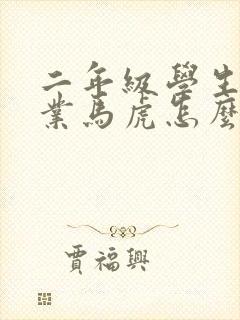 二年級學生
業馬虎怎麼
賈福興